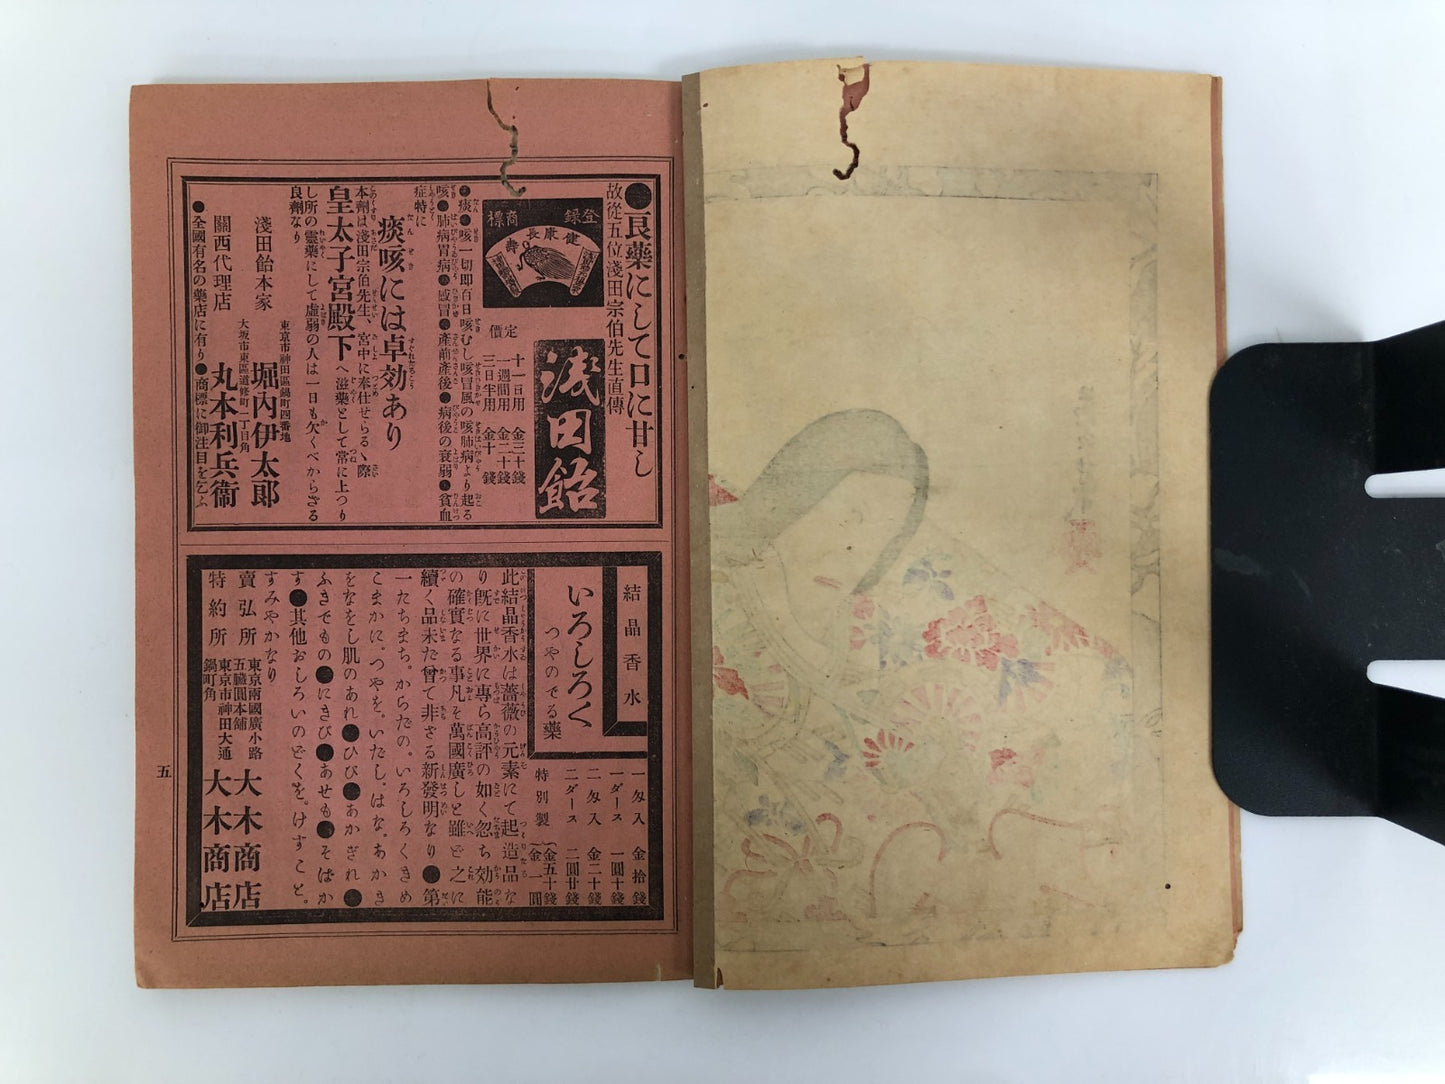 ●良藥にして口に甘し
故從五位淺田宗伯先生直傳
登録商標
健康長壽
淺田飴
定價
十一日用 金三十錢
一週間用 金二十錢
三日半用 金十錢
●痰●咳一切即百日咳むし咳冒風の咳肺病より起る
咳●肺病胃病●感冒●產前產後●病後の衰弱●貧血
症特に
痰咳には卓効あり
本劑は淺田宗伯先生、宮中に奉仕せらるゝ際
皇太子宮殿下へ滋藥として常に上つり
し所の靈藥にして虛弱の人は一日も欠くべからざる
良劑なり
淺田飴本家
東京市神田區鍋町四番地
堀內伊太郎
關西代理店
大坂市東區道修町一丁目角
丸本利兵衞
●全國有名の藥店に有り●商標に御注目を乞ふ
結晶香水
いろしろく
つやのでる藥
一匁入 金拾錢
一ダース 一圓十錢
二匁入 金二十錢
二ダース 二圓廿錢
特別製 金五十錢
金一圓
此結晶香水は薔薇の元素にて起造品な
り旣に世界に專ら高評の如く忽ち効能
の確實なる事凡そ萬國廣しと雖ど之に
續く品未だ曾て非ざる新發明なり●第
一たちまち。からだの。いろしろくきめ
こまかに。つやを。いだし。はな。あかき
をなをし肌のあれ●ひび●あかぎれ●
ふきでもの●にきび●あせも●そばか
す●其他おしろいのどくを。けすこと。
すみやかなり
賣弘所
東京兩國廣小路
五臟圓本舖
大木商店
特約所
東京市神田大通
鍋町角
大木商店
五